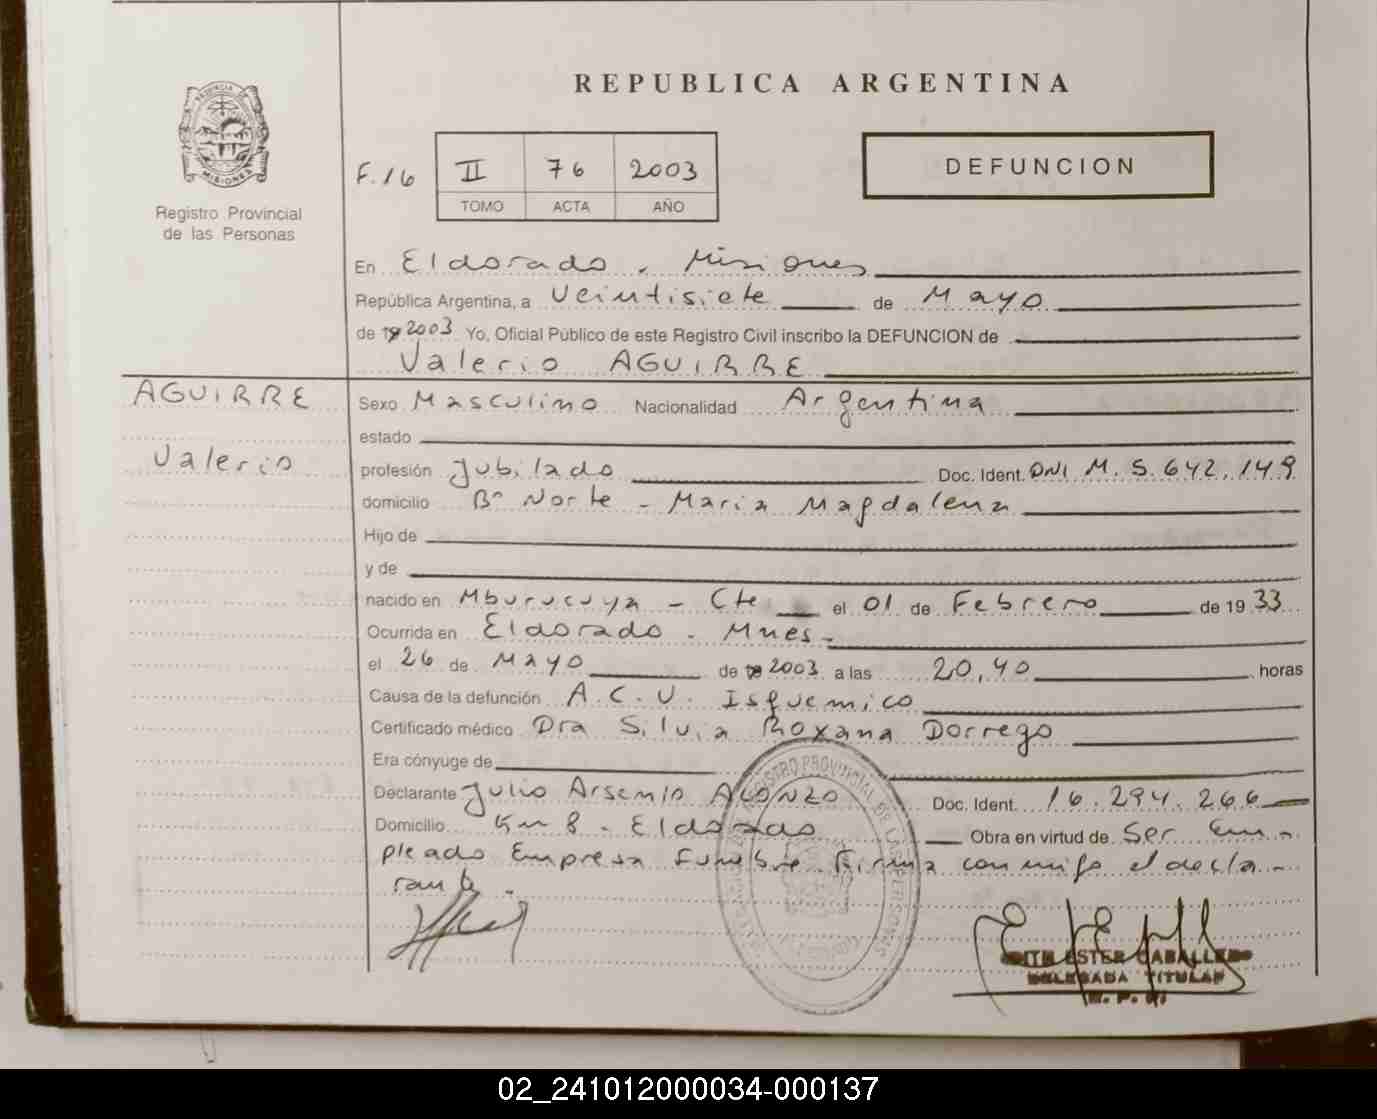 REPUBLICA ARGENTINA
PROVINCIA DE
MISIONES
Registro Provincial
de las Personas
F.16 II 76 2003
TOMO ACTA AÑO
DEFUNCION
En Eldorado . Misiones
República Argentina, a veintisiete de Mayo
de 19 2003 Yo, Oficial Público de este Registro Civil inscribo la DEFUNCION de
Valerio AGUIRRE
AGUIRRE
Valerio
Sexo Masculino Nacionalidad Argentina
estado
profesión Jubilado Doc. Ident. DNI M. 5.642.149
domicilio Bº Norte - Maria Magdalena
Hijo de
y de
nacido en Mburucuya - Cte el 01 de Febrero de 19 33
Ocurrida en Eldorado - Mnes -
el 26 de Mayo de 19 2003 a las 20,40 horas
Causa de la defunción A.C.V. Isquemico
Certificado médico Dra Silvia Roxana Dorrego
Era cónyuge de
Declarante Julio Arsenio ALONZO Doc. Ident. 16.294.266
Domicilio Km 8 - Eldorado Obra en virtud de Ser Em-
pleado Empresa Funebre. Firma conmigo el decla-
rante.
REGISTRO PROVINCIAL DE LAS PERSONAS
EDITH ESTER CABALLERO
DELEGADA TITULAR
02_241012000034-000137